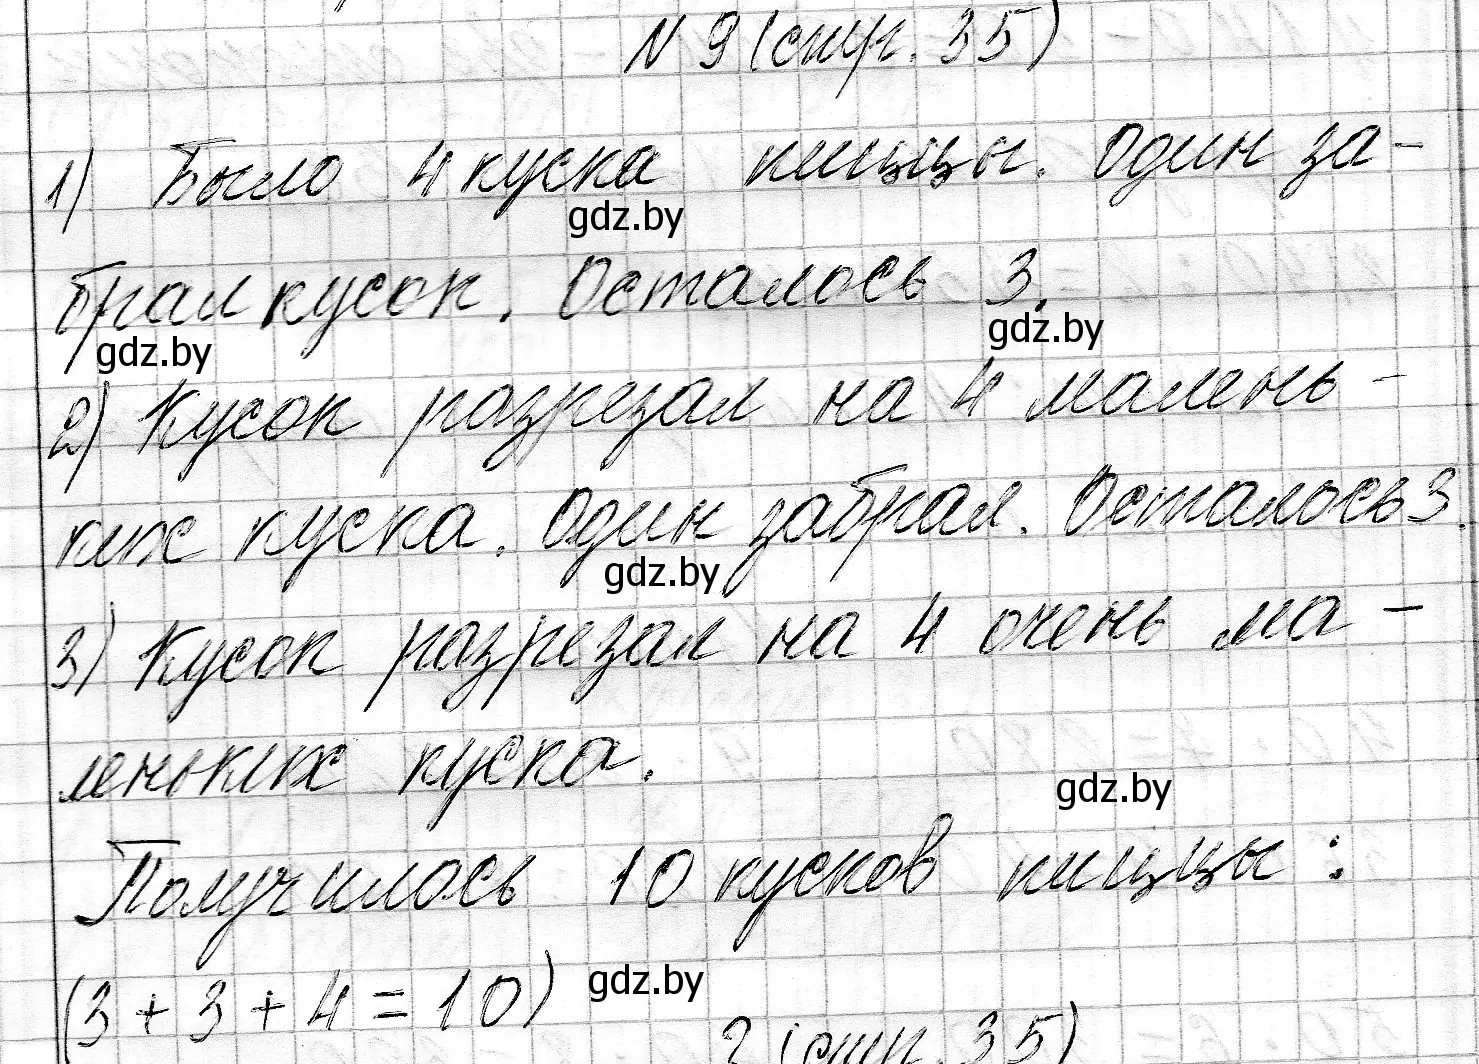 N 9 (стр. 35)
1) Было 4 куска пиццы. Один за-
gdz.by
брал кусок. Осталось 3.
gdz.by
gdz.by
2) Кусок разрезал на 4 малень-
ких куска. Один забрал. Осталось 3.
gdz.by
3) Кусок разрезал на 4 очень ма-
леньких куска.
gdz.by
Получилось 10 кусков пиццы:
(3 + 3 + 4 = 10)
gdz.by
? (стр. 35)